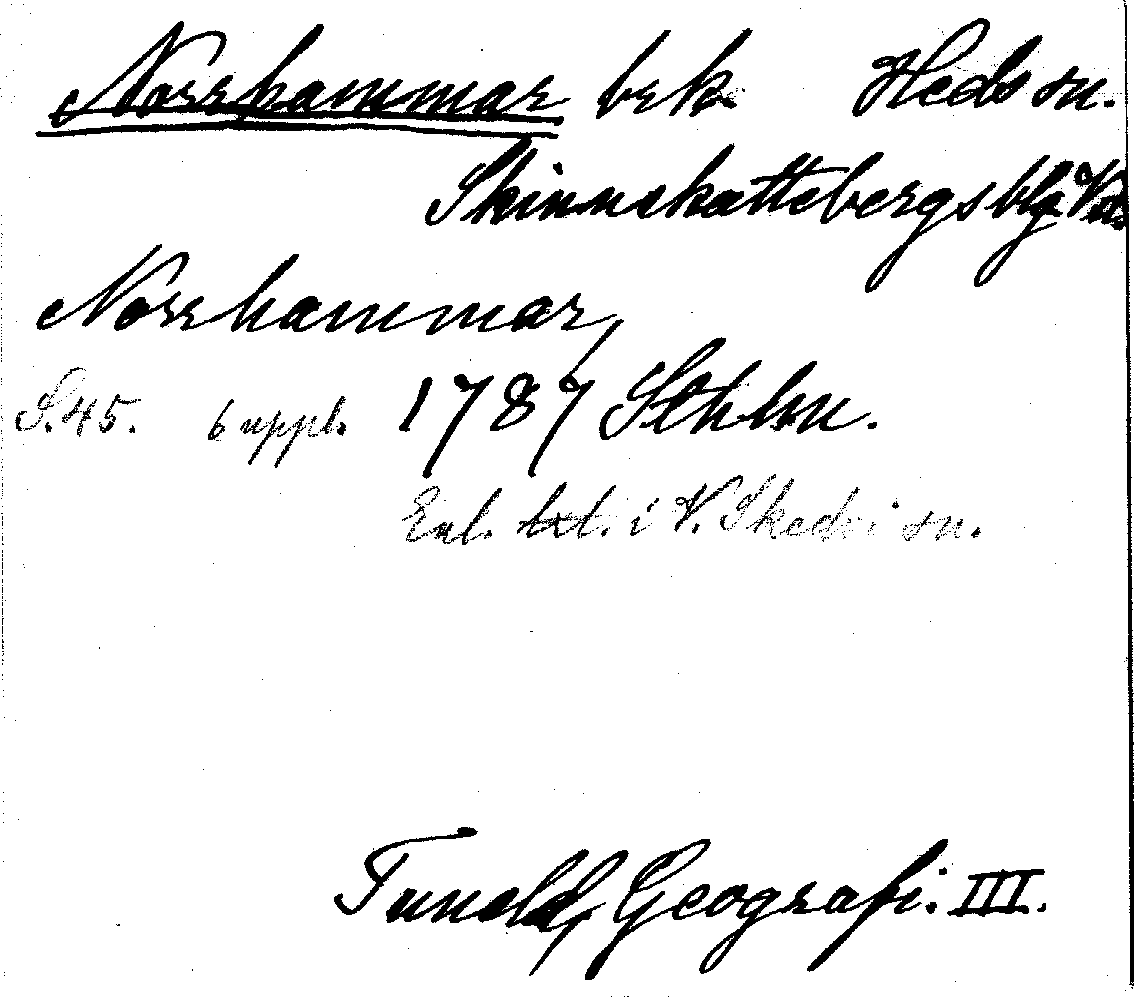 Norrhammar brk Heds sn.
Skinnskattebergs blg Vm
Norrhammar,
S. 45. 6 uppl. 1787 Sthlm.
Enl. txt. i V. Skedvi sn.
Tuneld, Geografi. III.